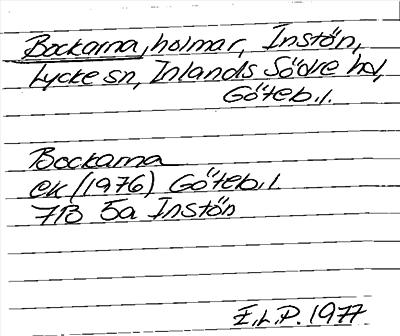 Bockarna, holmar, Instön,
Lycke sn, Inlands Södre hd,
Göteb. l.
Bockarna
ek (1976) Göteb. l
7B 5a Instön
E.L.P. 1977